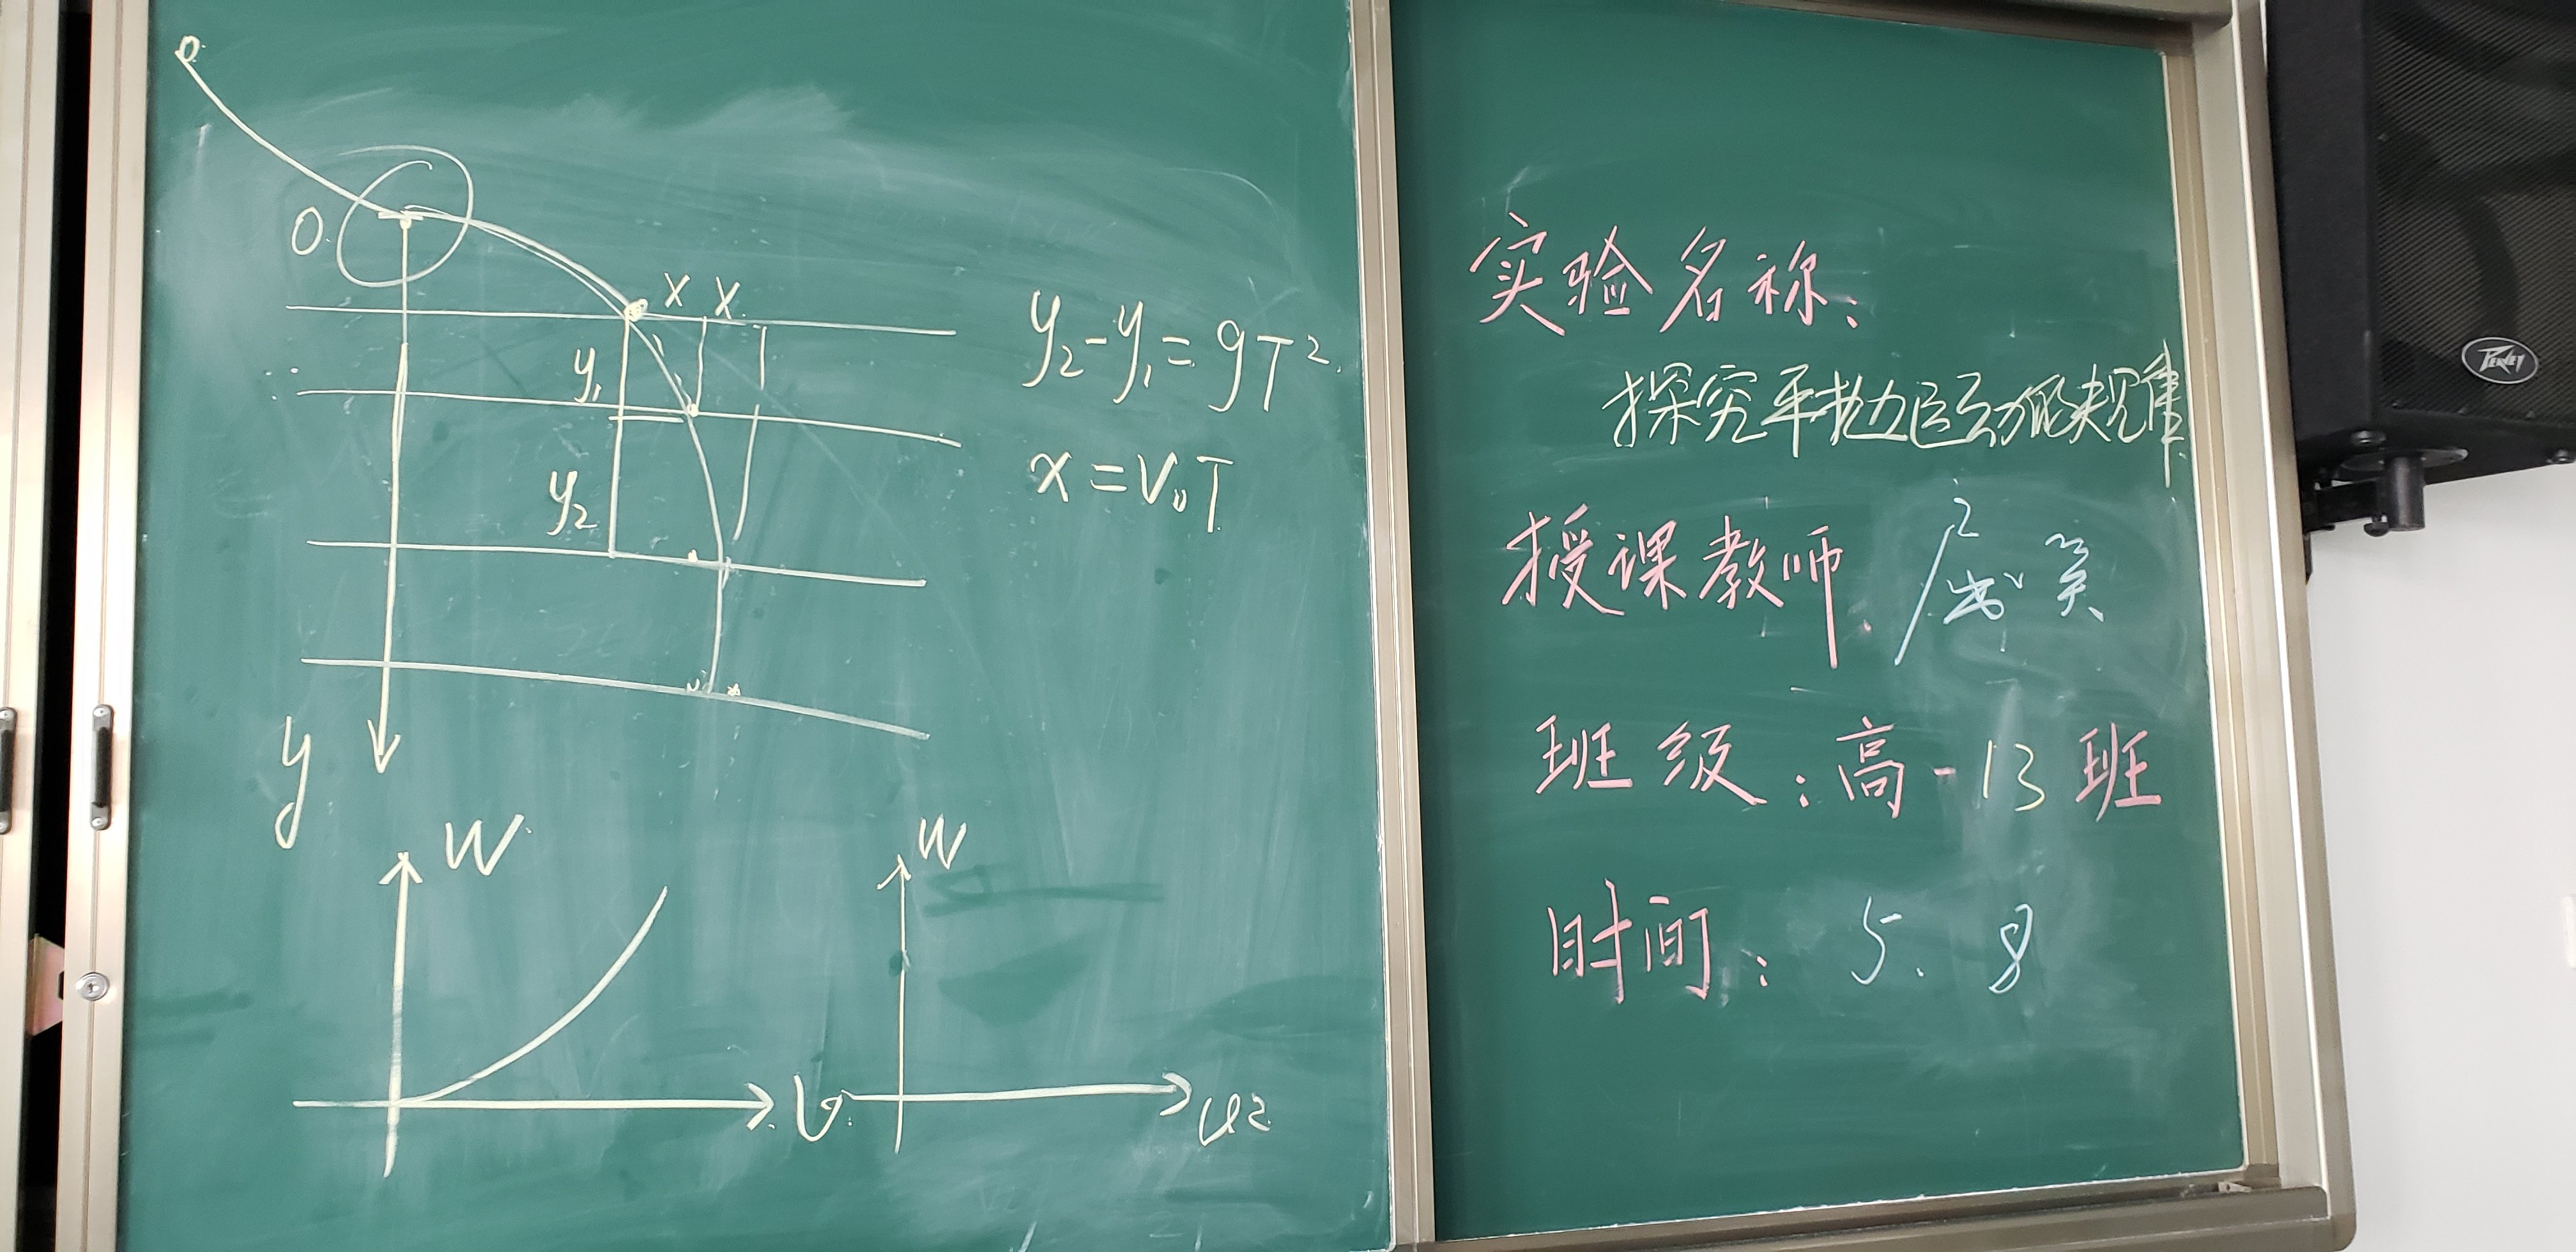 O
x x
y₁
y₂
y
y₂-y₁=gT²
x=v₀T
W
v
W
v²
实验名称:
探究平抛运动的规律
授课教师
班级:高一13班
时间: 5. 8
PEAVEY